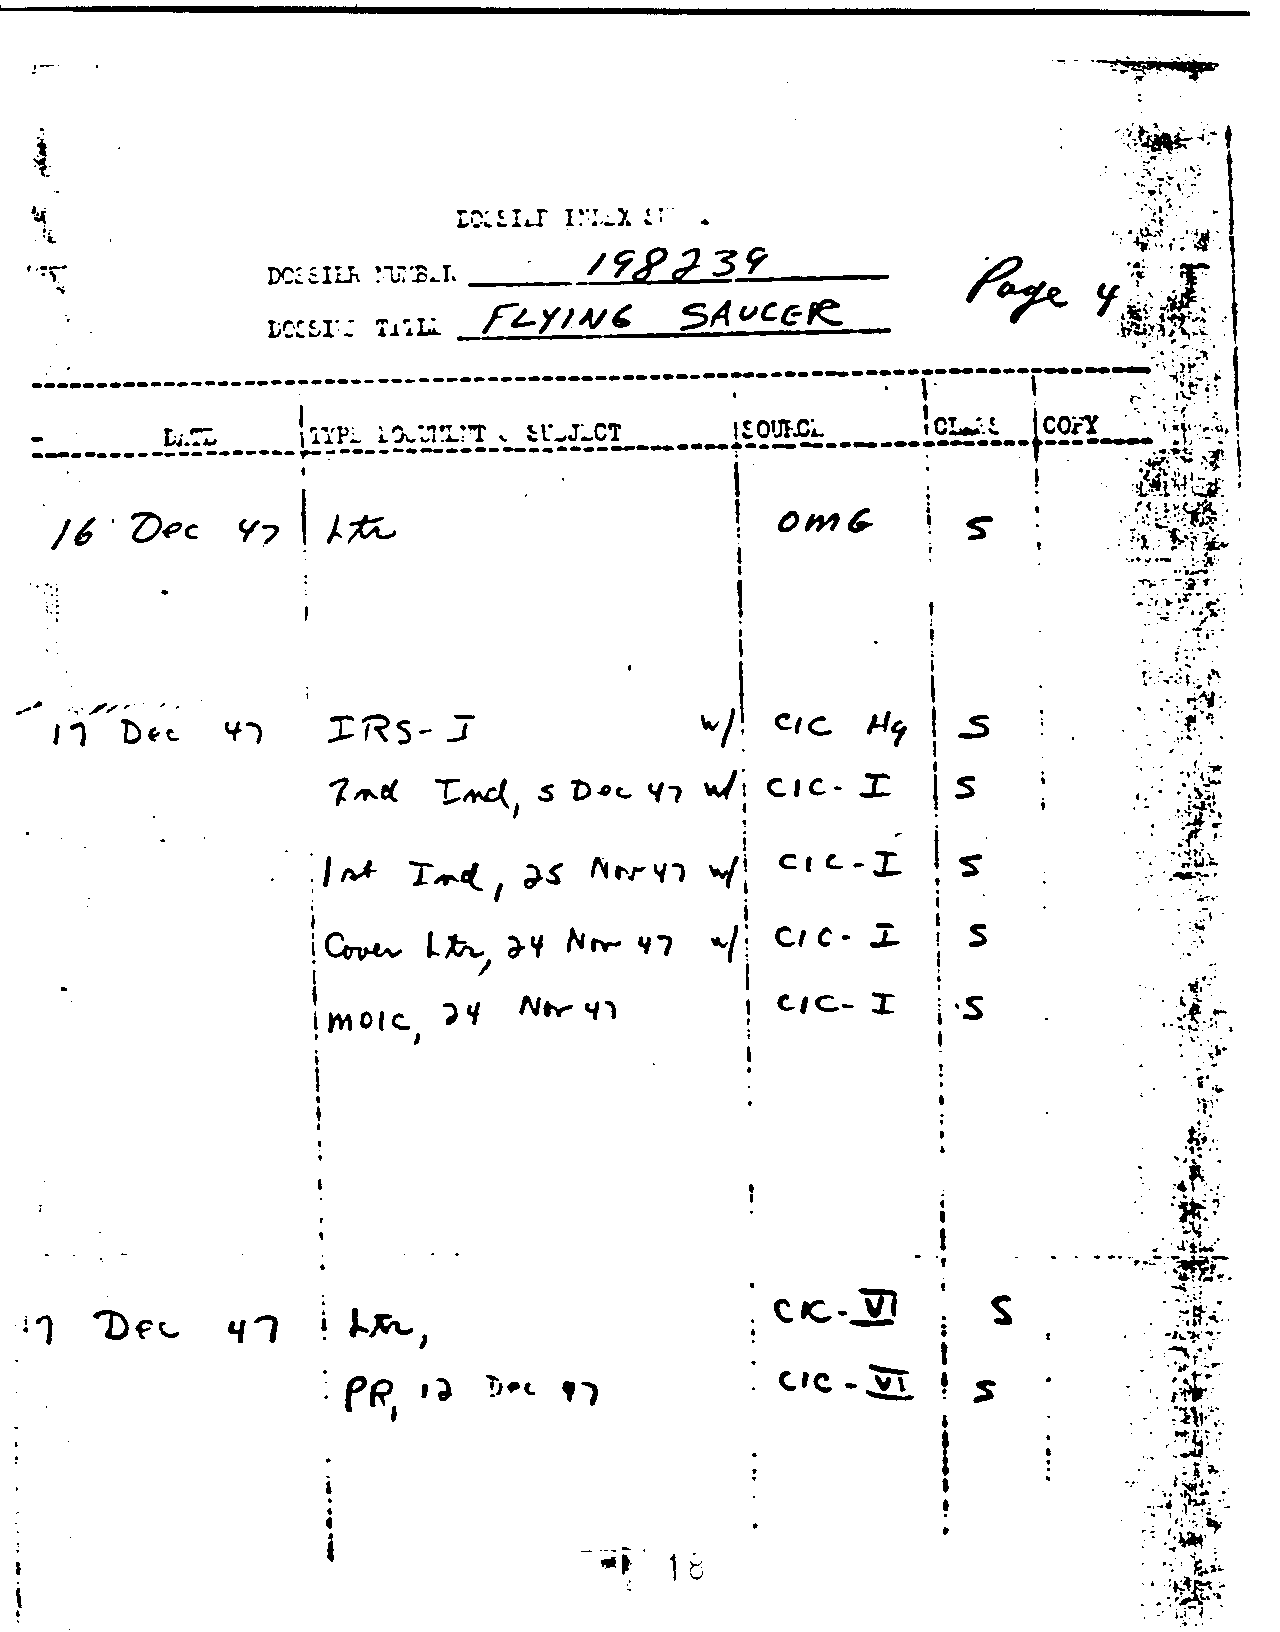 DOSSIER INDEX
DOSSIER NUMBER 198239
Page 4
DOSSIER TITLE FLYING SAUCER
DATE TYPE DOCUMENT & SUBJECT SOURCE CLASS COPY
16 Dec 47 Ltr OMG S
17 Dec 47 IRS-I w/ CIC Hq S
2nd Ind, 5 Dec 47 w/ CIC-I S
1st Ind, 25 Nov 47 w/ CIC-I S
Cover Ltr, 24 Nov 47 w/ CIC-I S
MOIC, 24 Nov 47 CIC-I S
17 Dec 47 Ltr, CIC-VI S
PR, 12 Dec 47 CIC-VI S
18